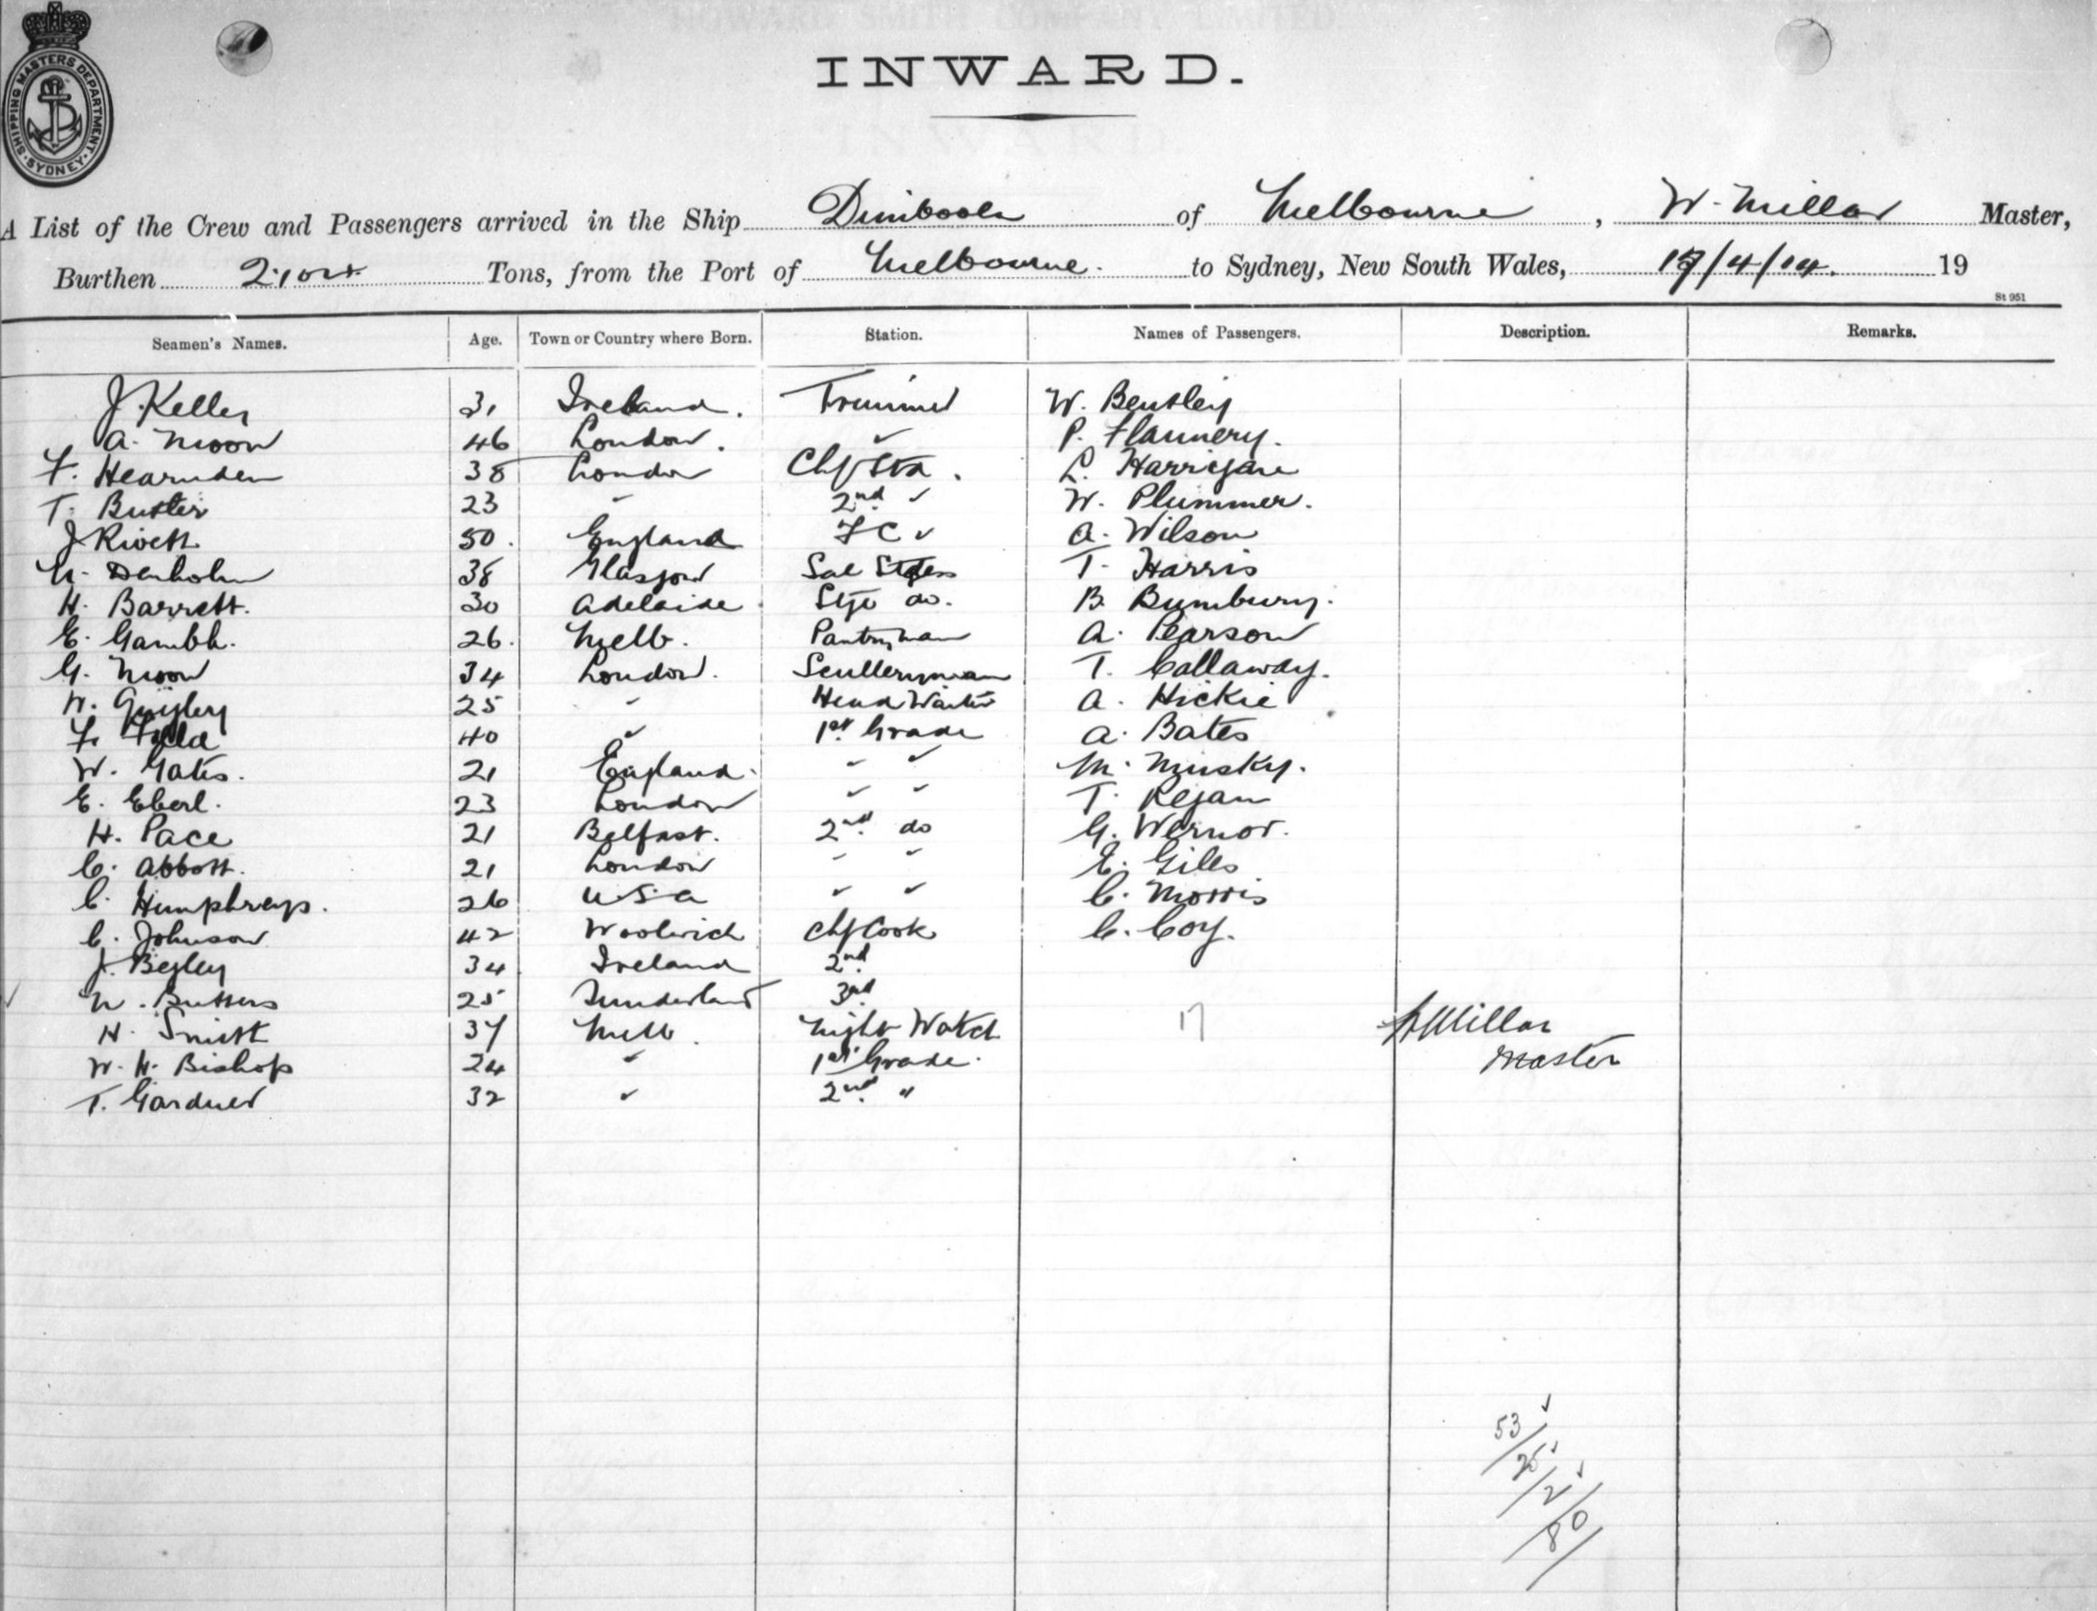 SHIPPING MASTERS DEPARTMENT. SYDNEY.
INWARD.
A List of the Crew and Passengers arrived in the Ship Dimboola of Melbourne, W. Millar Master,
Burthen Tons, from the Port of Melbourne. to Sydney, New South Wales, /4/14. 19
St 951
Seamen's Names. Age. Town or Country where Born. Station. Names of Passengers. Description. Remarks.
J. Keller 31 Ireland. Trimmer W. Bentley
A. Moon 46 London. ✓ P. Flannery.
F. Hearnden 38 London Chf Std. L. Harrigan
T. Butler 23 " 2nd ✓ W. Plummer.
J Rivett 50. England F C ✓ A. Wilson
Denholm 38 Glasgow Sal Stdess T. Harris
H. Barrett. 30 Adelaide Stge do. B. Bumbury.
E. Gamble. 26. Melb. Pantryman A. Pearson
G. Moon 34 London. Sculleryman T. Callaway.
W. Quigley 25 " Head Waiter A. Hickie
F. 40 " 1st Grade A. Bates
W. Gates. 21 England. " " M. Minsky.
E. Eberl. 23 London " " T. Regan
H. Pace 21 Belfast. 2nd do G. Wernor.
C. Abbott. 21 London " " E. Giles
C. Humphreys. 26 U.S.A " " C. Morris
C. Johnson 42 Woolwich Chf Cook C. Coy.
J. Begley 34 Ireland 2nd
✓ Butters 25 Sunderland 3rd
H. Smith 37 Melb. Night Watch 17 WMillar
W. H. Bishop 24 " 1st Grade. Master
T. Gardner 32 " 2nd "
53 ✓
25 ✓
2 ✓
80